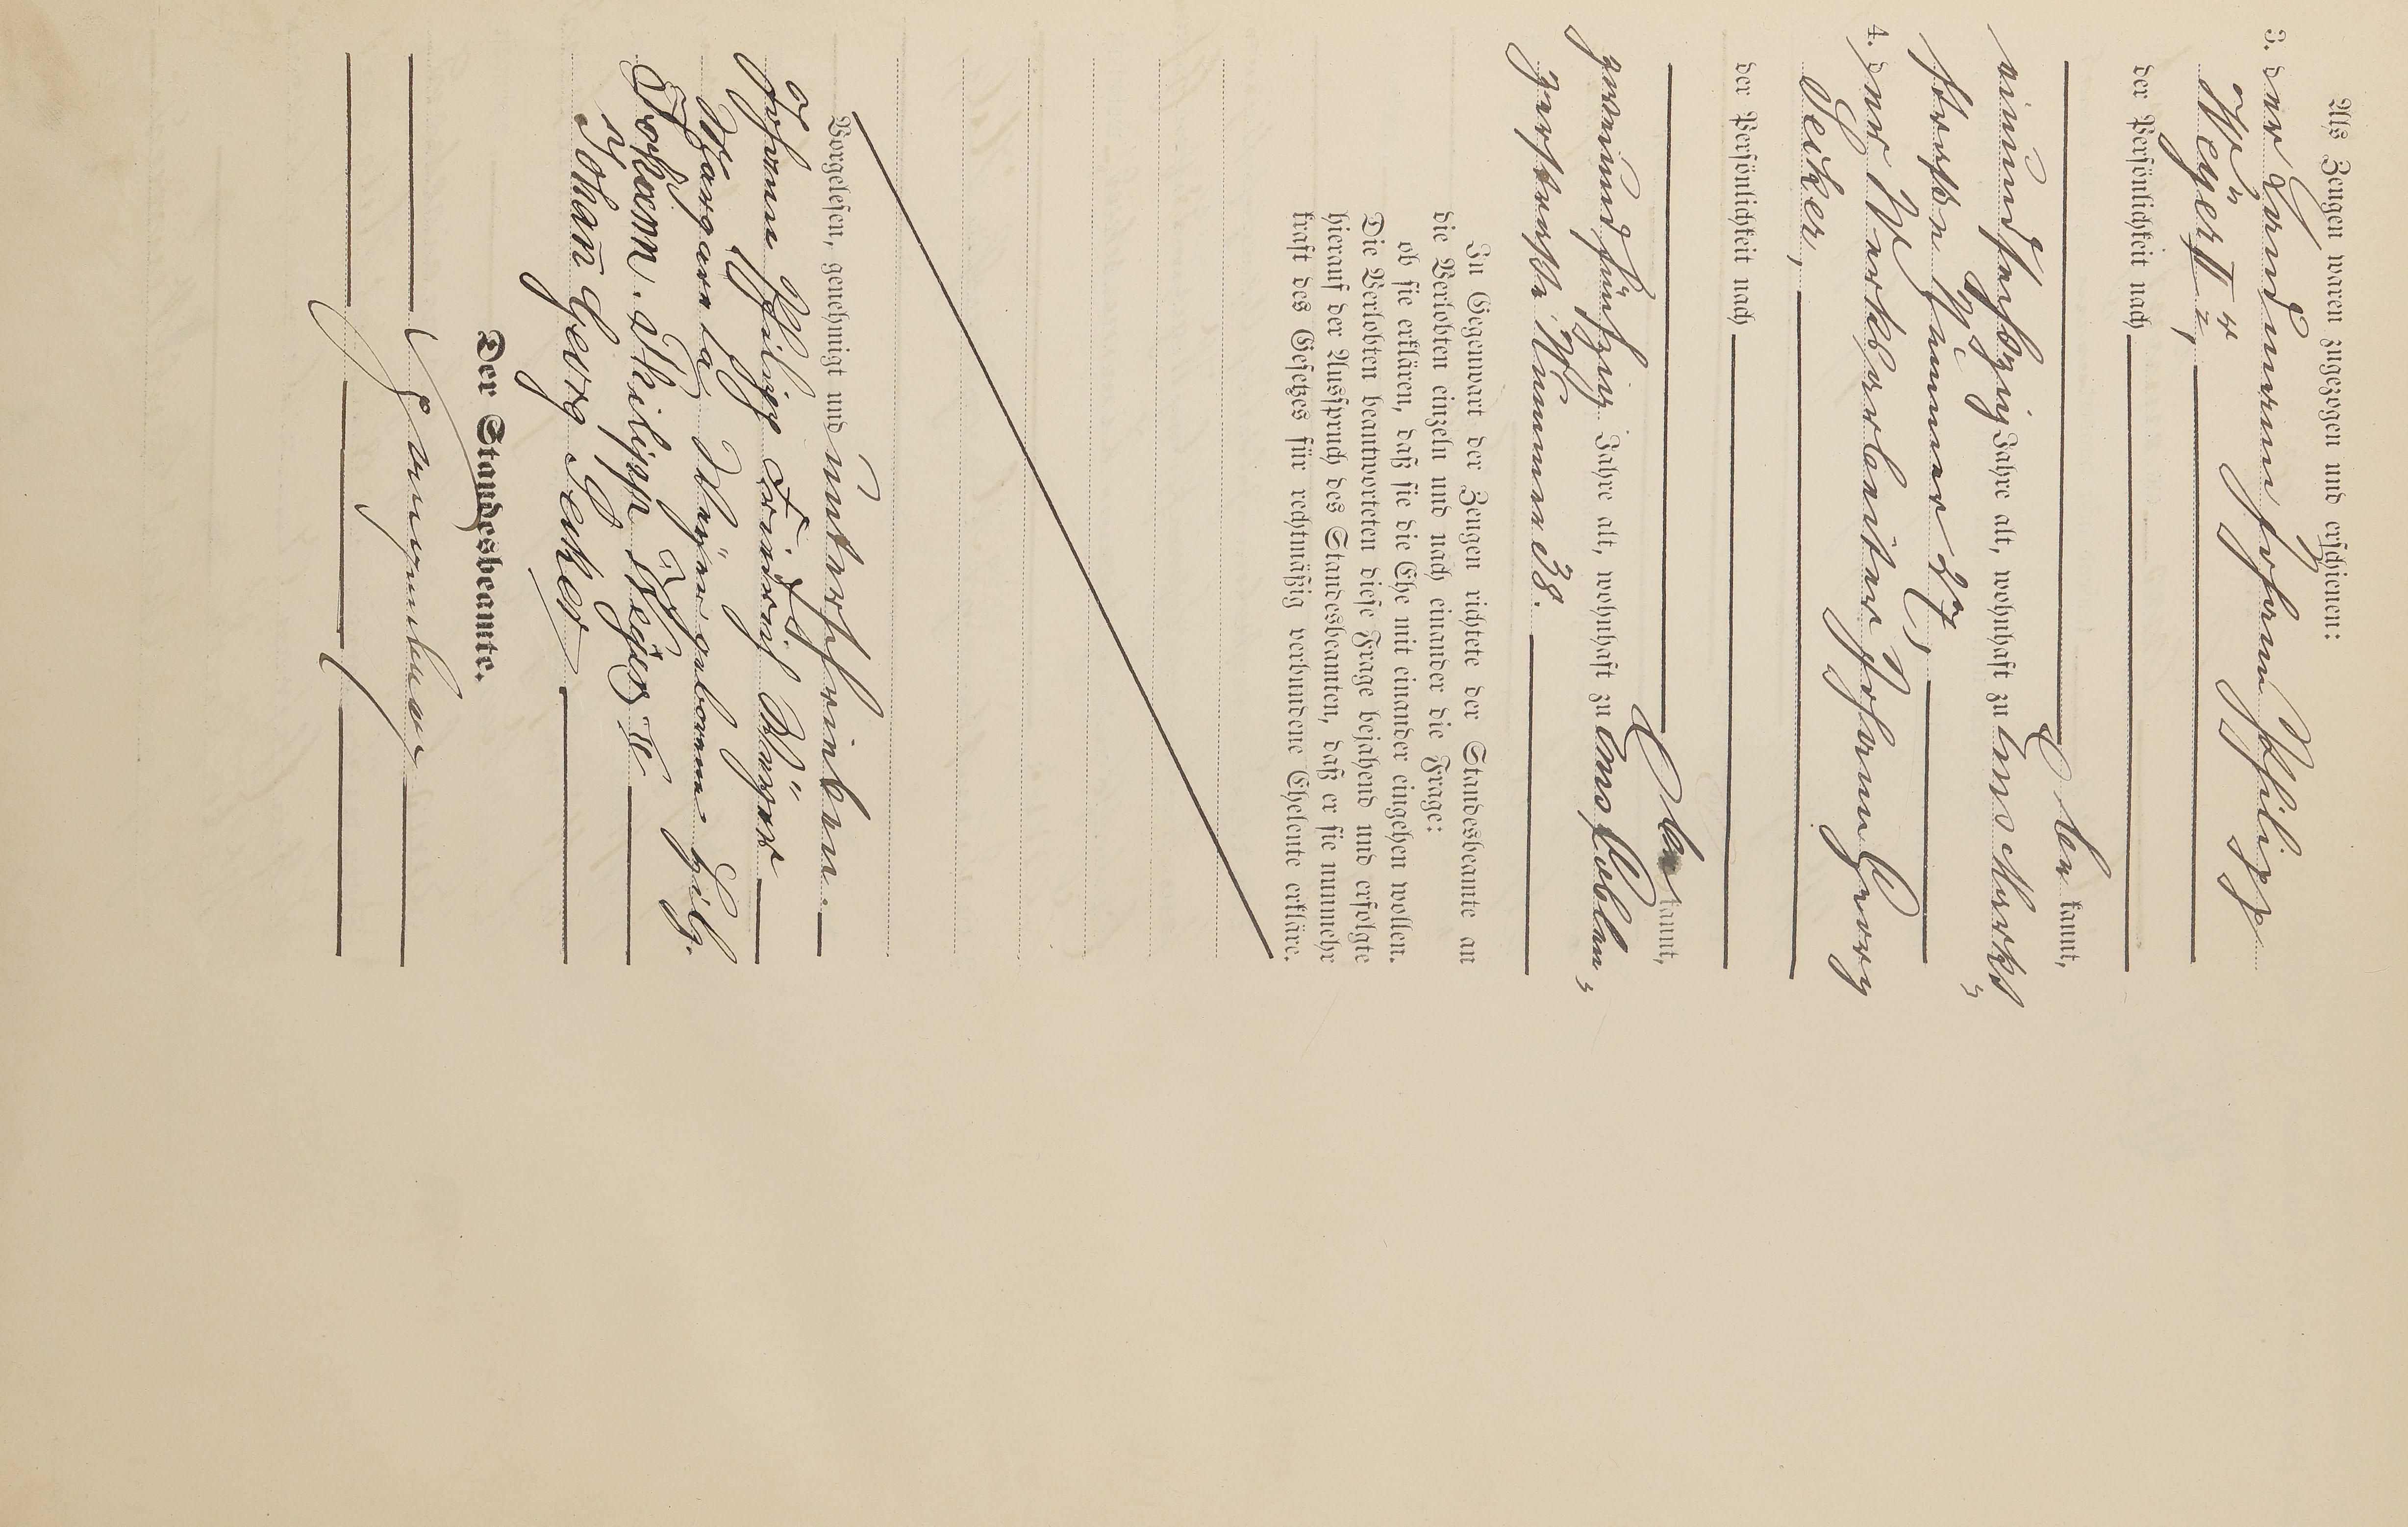 Als Zeugen waren zugezogen und erschienen:
3. der Landmann Johann Philipp
Weÿer II ter,
der Persönlichkeit nach
kannt,
einundsechzig Jahre alt, wohnhaft zu Ems Markt-
straße Nummer 27,
4. der Werkarbeiter Johann Georg
Becker,
der Persönlichkeit nach
kannt,
zweiundfünfzig Jahre alt, wohnhaft zu Ems, Coblen-
zerstraße Nummer 38.
In Gegenwart der Zeugen richtete der Standesbeamte an
die Verlobten einzeln und nach einander die Frage:
ob sie erklären, daß sie die Ehe mit einander eingehen wollen.
Die Verlobten beantworteten diese Frage bejahend und erfolgte
hierauf der Ausspruch des Standesbeamten, daß er sie nunmehr
kraft des Gesetzes für rechtmäßig verbundene Eheleute erkläre.
Vorgelesen, genehmigt und unterschrieben.
Johann Philipp Friedrich
Weÿer geborene
Johann Philipp Weÿer II
Johann Georg Becker
Der Standesbeamte.